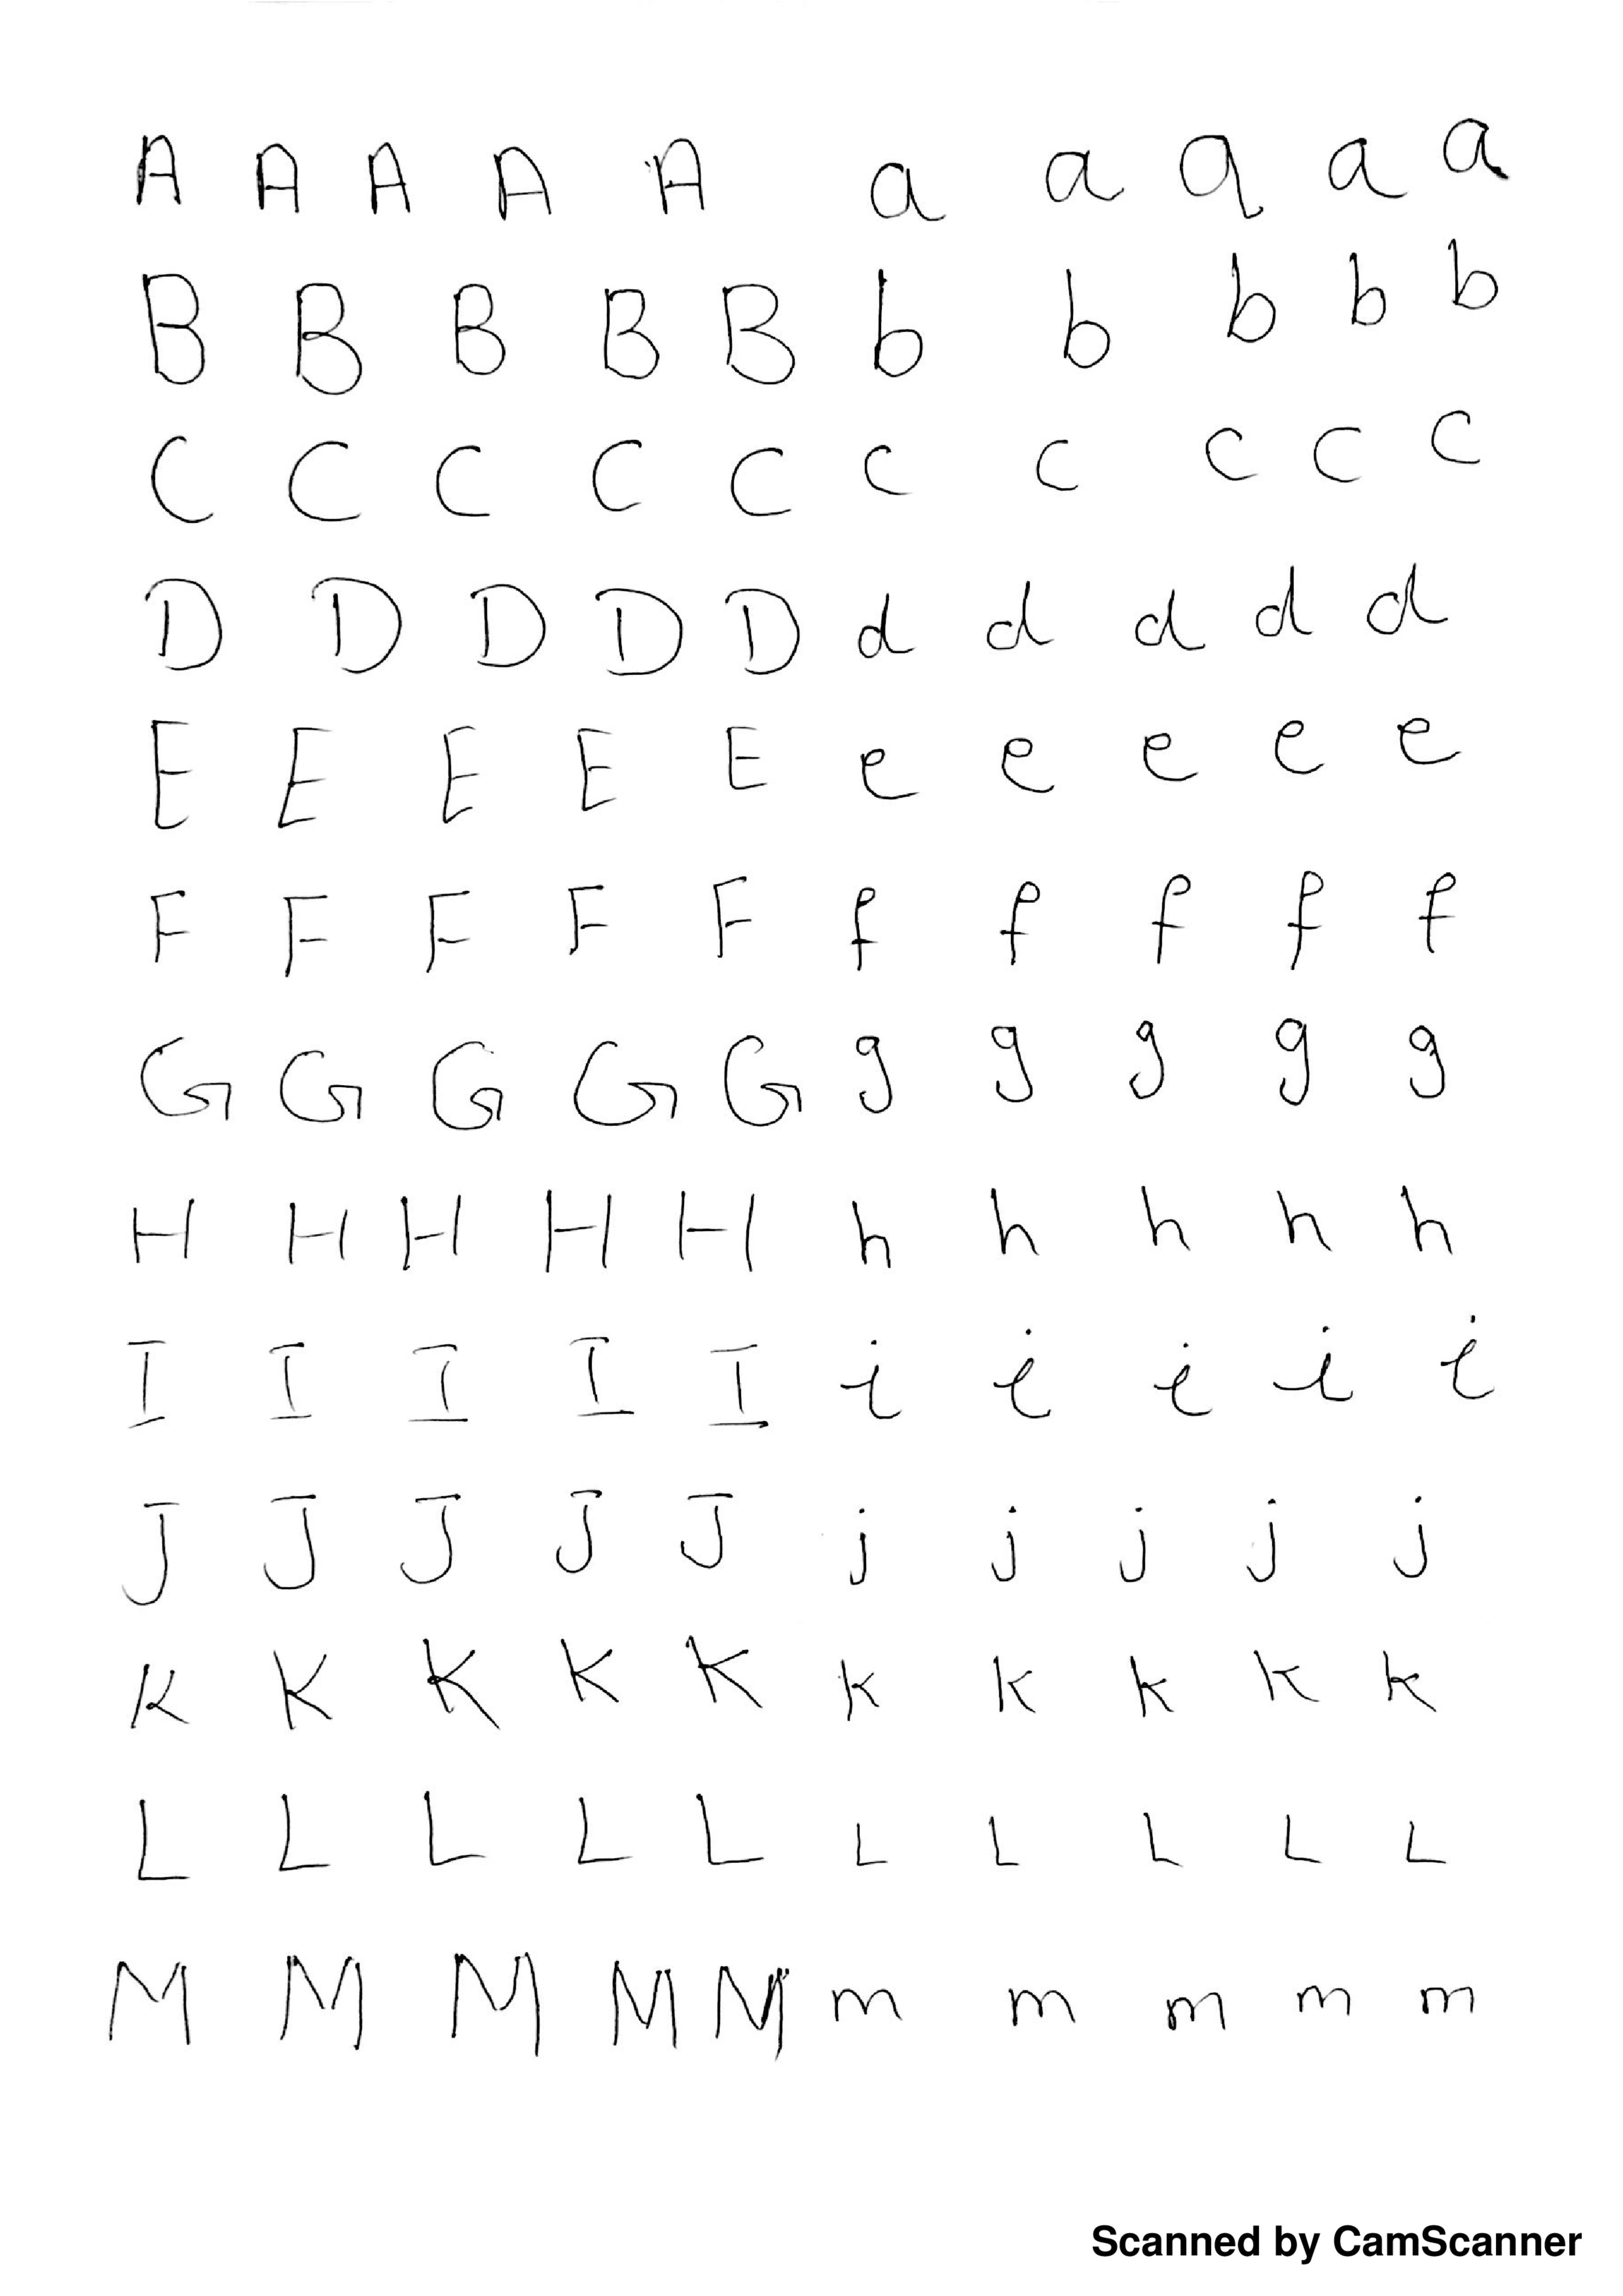 A A A A A a a a a a
B B B B B b b b b b
C C C C C c c c c c
D D D D D d d d d d
E E E E E e e e e e
F F F F F f f f f f
G G G G G g g g g g
H H H H H h h h h h
I I I I I i i i i i
J J J J J j j j j j
K K K K K k k k k k
L L L L L L L L L L
M M M M M m m m m m
Scanned by CamScanner